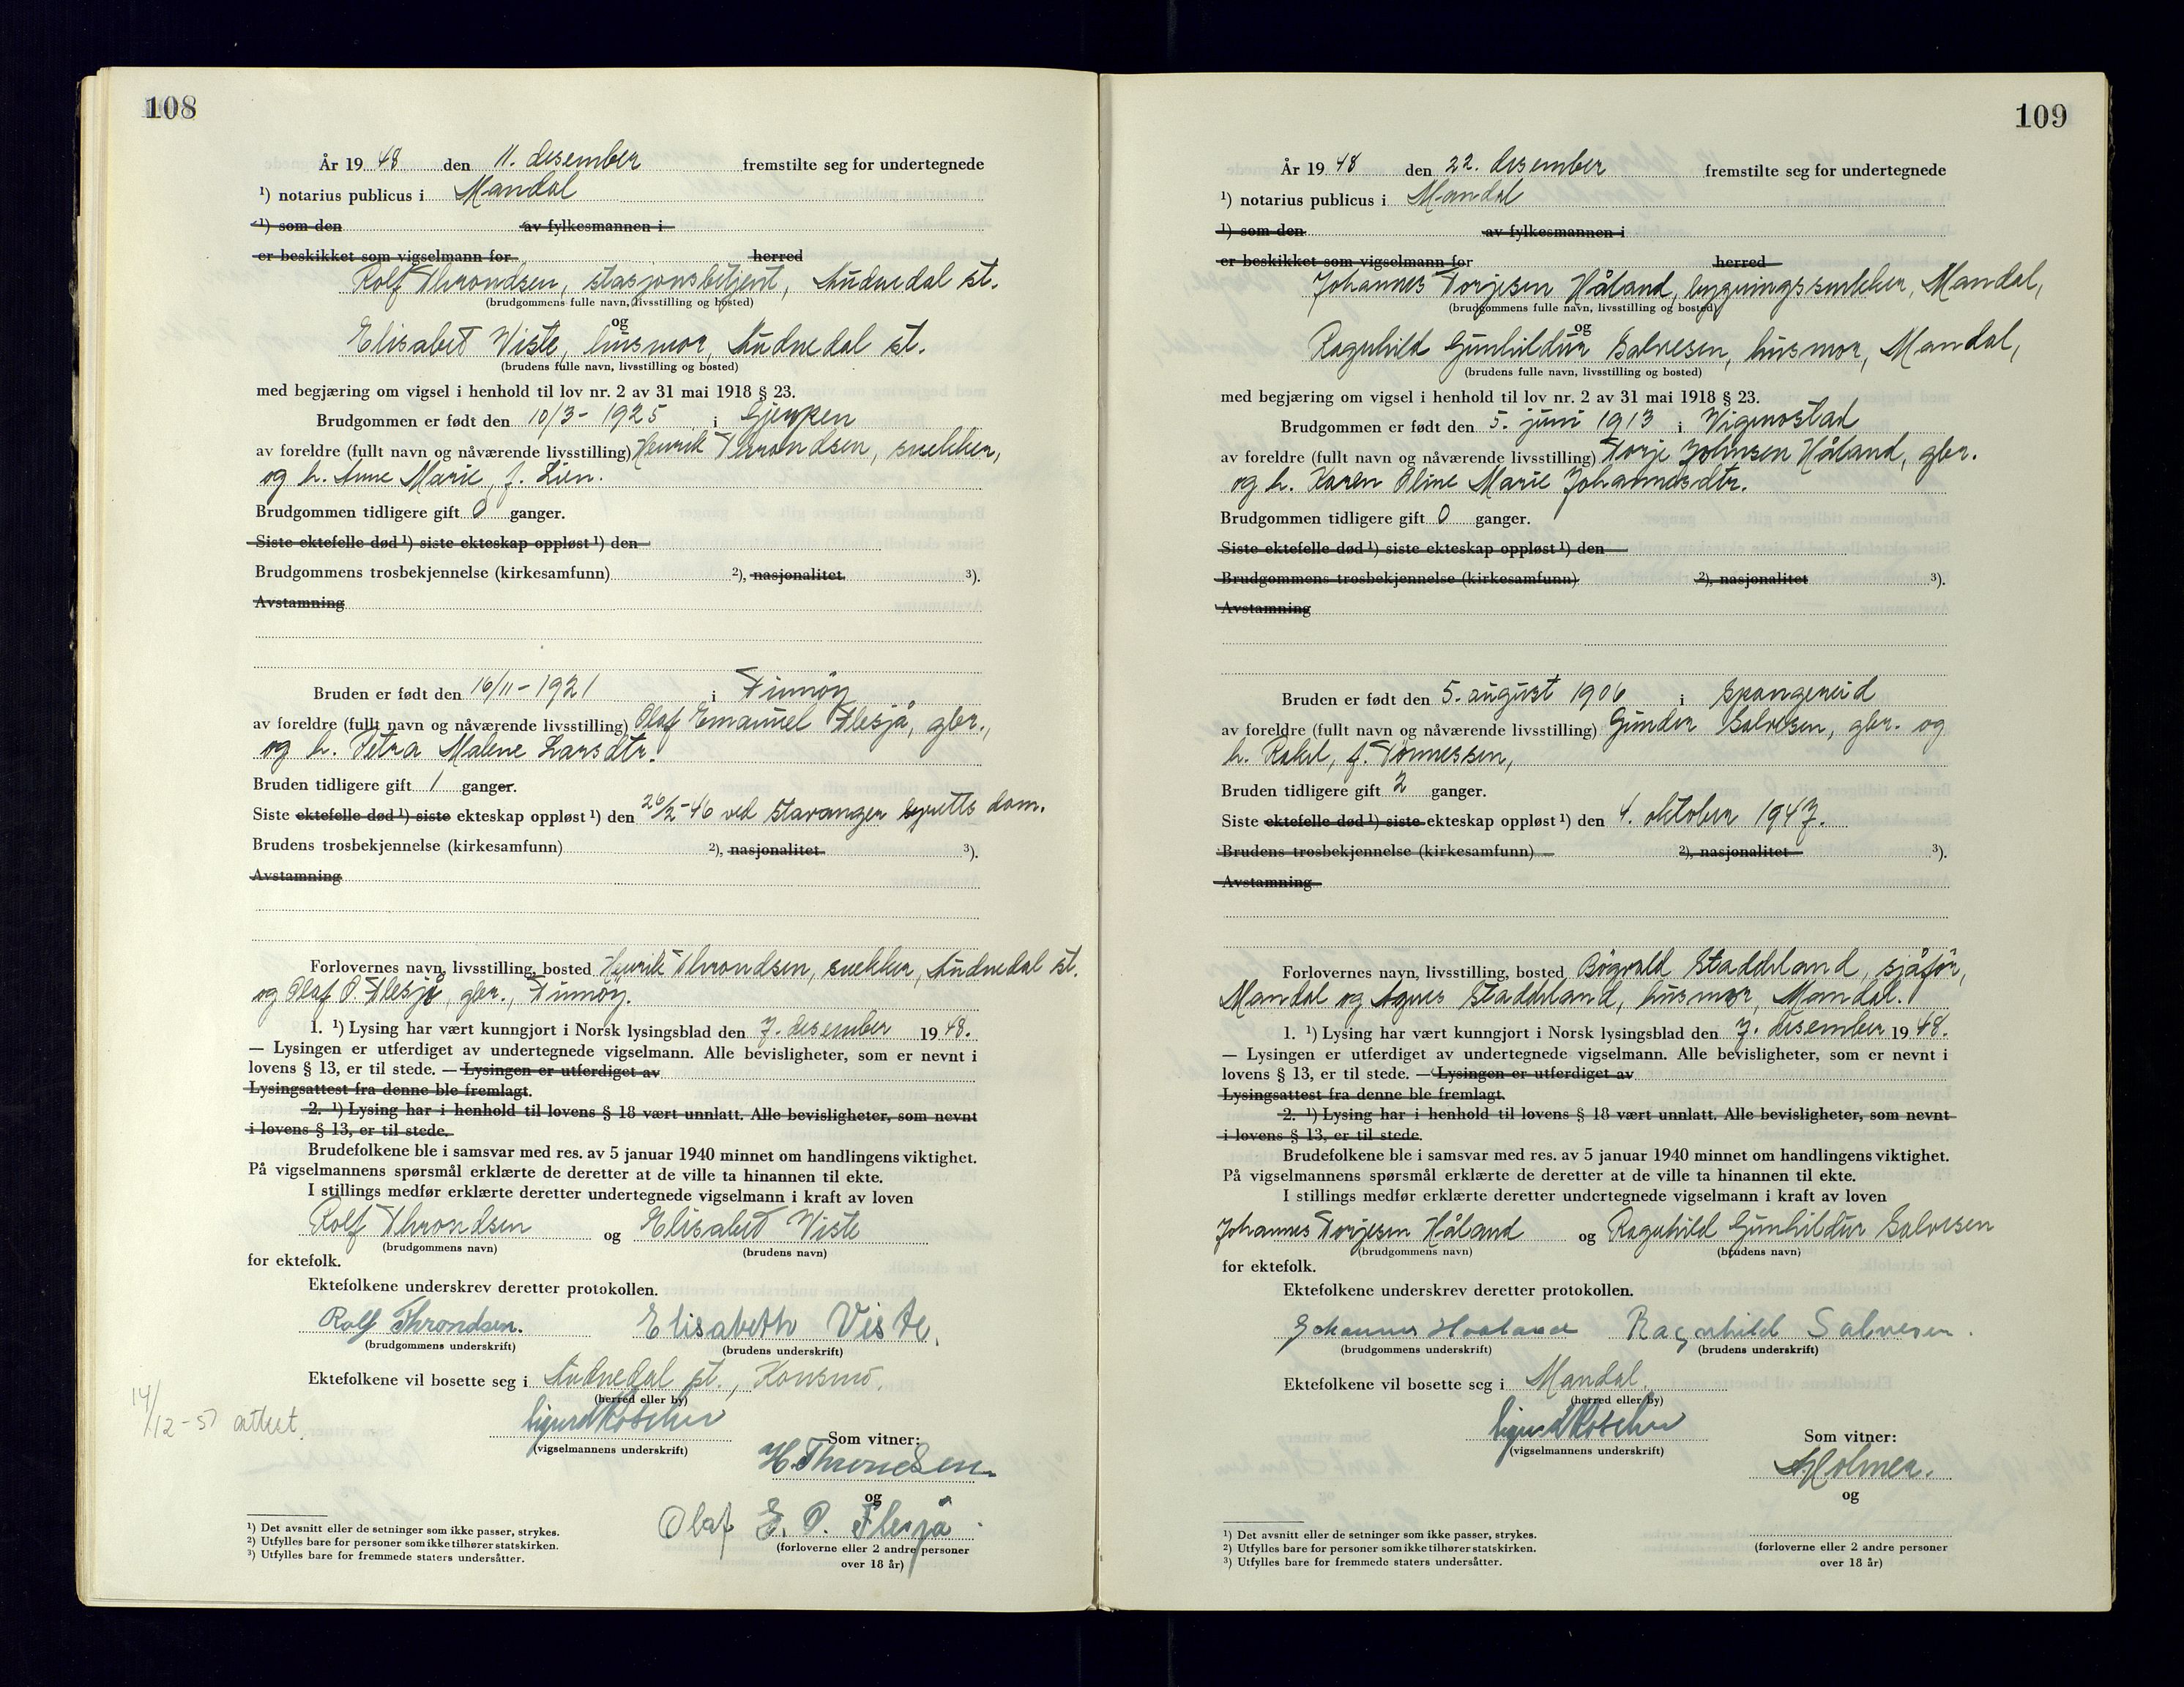 108
År 19 48 den 11. desember fremstilte seg for undertegnede
¹) notarius publicus i Mandal
¹) som den av fylkesmannen i
er beskikket som vigselmann for herred
Rolf Throndsen, stasjonsbetjent, Audnedal st.
(brudgommens fulle navn, livsstilling og bosted)
og
Elisabet Viste, husmor, Audnedal st.
(brudens fulle navn, livsstilling og bosted)
med begjæring om vigsel i henhold til lov nr. 2 av 31 mai 1918 § 23.
Brudgommen er født den 10/3 - 1925 i Gjerpen
av foreldre (fullt navn og nåværende livsstilling) Henrik Throndsen, snekker,
og h. Anne Marie, f. Lien.
Brudgommen tidligere gift 0 ganger.
Siste ektefelle død ¹) siste ekteskap oppløst ¹) den
Brudgommens trosbekjennelse (kirkesamfunn) ²), nasjonalitet ³).
Avstamning
Bruden er født den 16/11 - 1921 i Finnøy
av foreldre (fullt navn og nåværende livsstilling) Olaf Emanuel Flesjå, gbr.,
og h. Petra Malene Larsdtr.
Bruden tidligere gift 1 ganger.
Siste ektefelle død ¹) siste ekteskap oppløst ¹) den 26/2 - 46 ved Stavanger byretts dom.
Brudens trosbekjennelse (kirkesamfunn) ²), nasjonalitet ³).
Avstamning
Forlovernes navn, livsstilling, bosted Henrik Throndsen, snekker, Audnedal st.
og Olaf O. Flesjå, gbr., Finnøy.
1. ¹) Lysing har vært kunngjort i Norsk lysingsblad den 7. desember 19 48.
— Lysingen er utferdiget av undertegnede vigselmann. Alle bevisligheter, som er nevnt i
lovens § 13, er til stede. — Lysingen er utferdiget av
Lysingsattest fra denne ble fremlagt.
2. ¹) Lysing har i henhold til lovens § 18 vært unnlatt. Alle bevisligheter, som nevnt
i lovens § 13, er til stede.
Brudefolkene ble i samsvar med res. av 5 januar 1940 minnet om handlingens viktighet.
På vigselmannens spørsmål erklærte de deretter at de ville ta hinannen til ekte.
I stillings medfør erklærte deretter undertegnede vigselmann i kraft av loven
Rolf Throndsen og Elisabet Viste
(brudgommens navn) (brudens navn)
for ektefolk.
Ektefolkene underskrev deretter protokollen.
Rolf Throndsen. Elisabeth Viste.
(brudgommens underskrift) (brudens underskrift)
Ektefolkene vil bosette seg i Audnedal st., Konsmo.
(herred eller by)
14/12 - 57 attest.
Sigurd Röscher
(vigselmannens underskrift)
Som vitner:
H. Throndsen
og
Olaf E. O. Flesjå
(forloverne eller 2 andre personer
over 18 år)
¹) Det avsnitt eller de setninger som ikke passer, strykes.
²) Utfylles bare for personer som ikke tilhører statskirken.
³) Utfylles bare for fremmede staters undersåtter.
109
År 19 48 den 22. desember fremstilte seg for undertegnede
¹) notarius publicus i Mandal
¹) som den av fylkesmannen i
er beskikket som vigselmann for herred
Johannes Torjesen Håland, bygningssnekker, Mandal,
(brudgommens fulle navn, livsstilling og bosted)
og
Ragnhild Gunhildur Salvesen, husmor, Mandal,
(brudens fulle navn, livsstilling og bosted)
med begjæring om vigsel i henhold til lov nr. 2 av 31 mai 1918 § 23.
Brudgommen er født den 5. juni 1913 i Vigmostad
av foreldre (fullt navn og nåværende livsstilling) Torje Johnsen Håland, gbr.
og h. Karen Oline Marie Johannesdtr.
Brudgommen tidligere gift 0 ganger.
Siste ektefelle død ¹) siste ekteskap oppløst ¹) den
Brudgommens trosbekjennelse (kirkesamfunn) ²), nasjonalitet ³).
Avstamning
Bruden er født den 5. august 1906 i Spangereid
av foreldre (fullt navn og nåværende livsstilling) Gunder Salvesen, gbr. og
h. Rakel, f. Tønnessen,
Bruden tidligere gift 2 ganger.
Siste ektefelle død ¹) siste ekteskap oppløst ¹) den 4. oktober 1947.
Brudens trosbekjennelse (kirkesamfunn) ²), nasjonalitet ³).
Avstamning
Forlovernes navn, livsstilling, bosted Bögvald Stadderland, sjåför,
Mandal og Agnes Stadderland, husmor, Mandal.
1. ¹) Lysing har vært kunngjort i Norsk lysingsblad den 7. desember 19 48.
— Lysingen er utferdiget av undertegnede vigselmann. Alle bevisligheter, som er nevnt i
lovens § 13, er til stede. — Lysingen er utferdiget av
Lysingsattest fra denne ble fremlagt.
2. ¹) Lysing har i henhold til lovens § 18 vært unnlatt. Alle bevisligheter, som nevnt
i lovens § 13, er til stede.
Brudefolkene ble i samsvar med res. av 5 januar 1940 minnet om handlingens viktighet.
På vigselmannens spørsmål erklærte de deretter at de ville ta hinannen til ekte.
I stillings medfør erklærte deretter undertegnede vigselmann i kraft av loven
Johannes Torjesen Håland og Ragnhild Gunhildur Salvesen
(brudgommens navn) (brudens navn)
for ektefolk.
Ektefolkene underskrev deretter protokollen.
Johannes Haaland Ragnhild Salvesen.
(brudgommens underskrift) (brudens underskrift)
Ektefolkene vil bosette seg i Mandal
(herred eller by)
Sigurd Röscher
(vigselmannens underskrift)
Som vitner:
Holmer.
og
(forloverne eller 2 andre personer
over 18 år)
¹) Det avsnitt eller de setninger som ikke passer, strykes.
²) Utfylles bare for personer som ikke tilhører statskirken.
³) Utfylles bare for fremmede staters undersåtter.